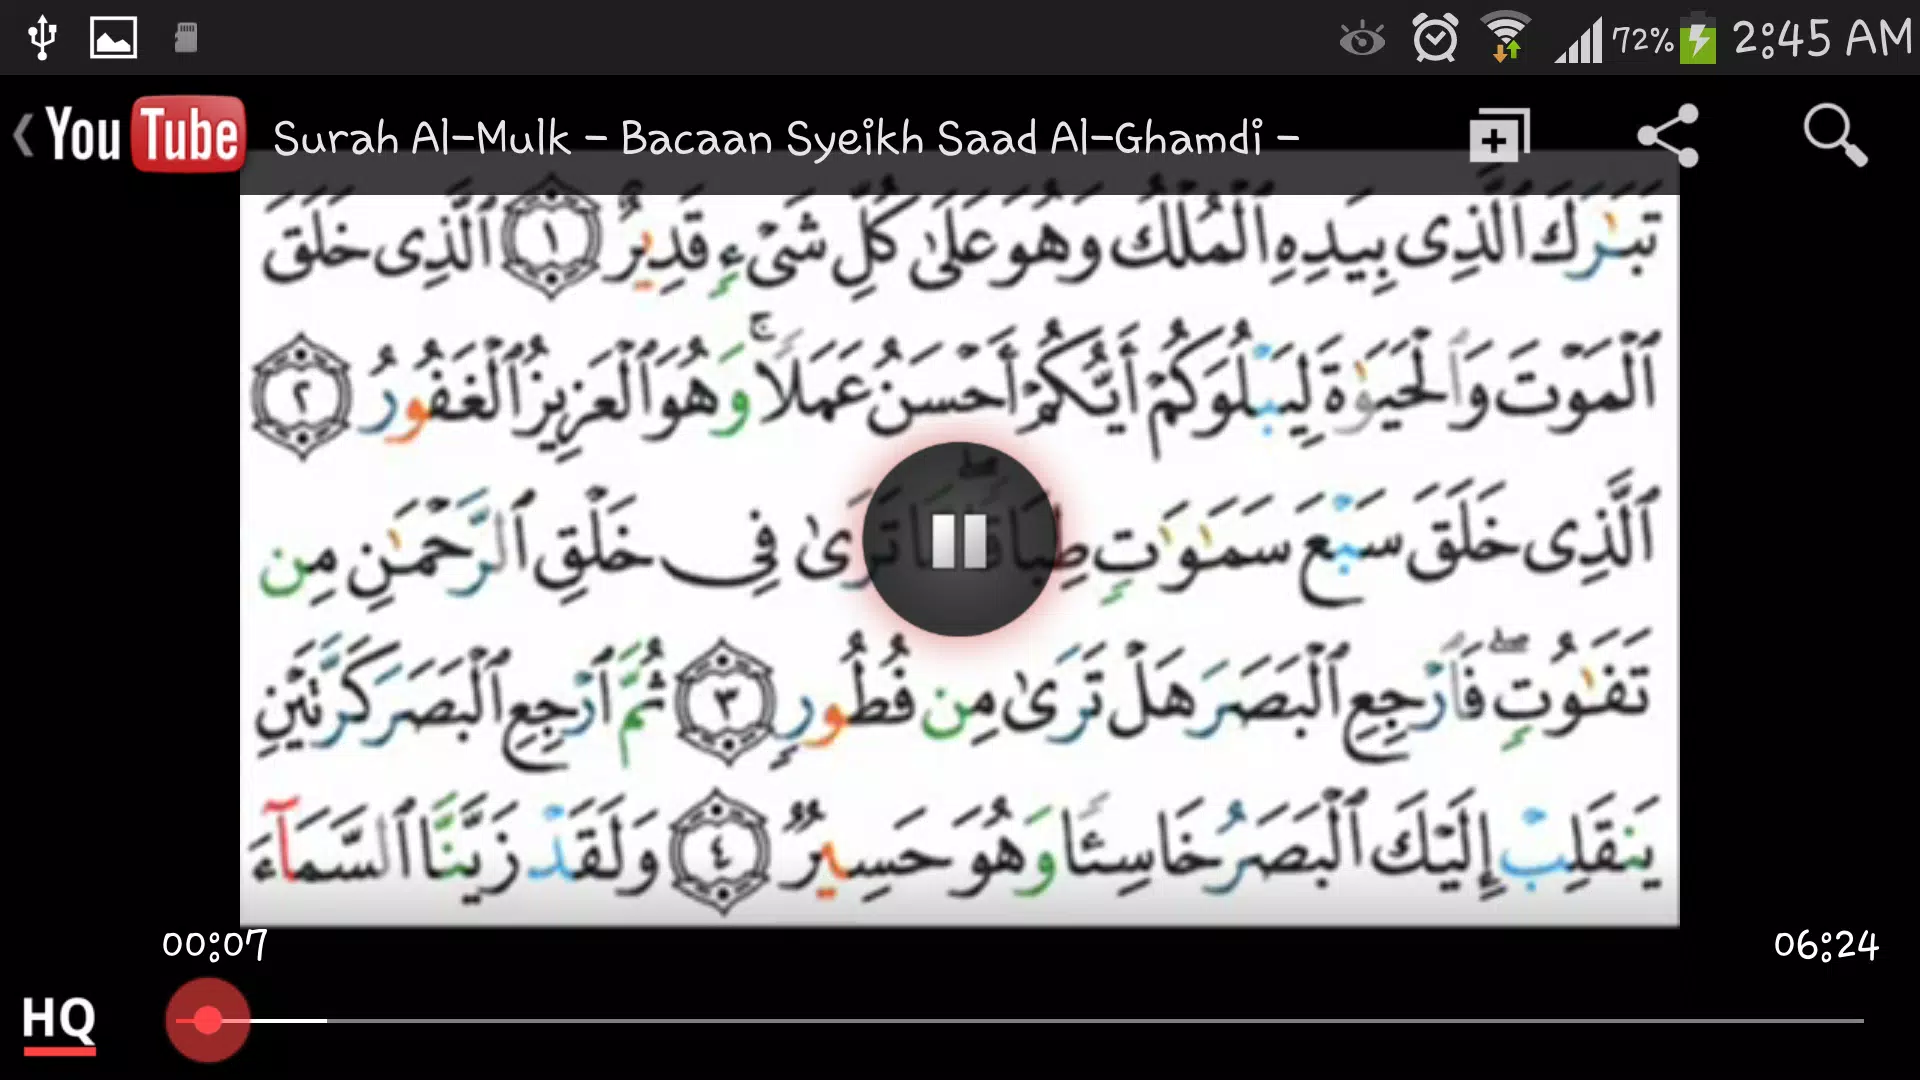 72% 2:45 AM
YouTube Surah Al-Mulk - Bacaan Syeikh Saad Al-Ghamdi -
تَبَٰرَكَ ٱلَّذِى بِيَدِهِ ٱلْمُلْكُ وَهُوَ عَلَىٰ كُلِّ شَىْءٍ قَدِيرٌ ١ ٱلَّذِى خَلَقَ
ٱلْمَوْتَ وَٱلْحَيَوٰةَ لِيَبْلُوَكُمْ أَيُّكُمْ أَحْسَنُ عَمَلًا ۚ وَهُوَ ٱلْعَزِيزُ ٱلْغَفُورُ ٢
ٱلَّذِى خَلَقَ سَبْعَ سَمَٰوَٰتٍ طِبَاقًا ۖ تَرَىٰ فِى خَلْقِ ٱلرَّحْمَٰنِ مِن
تَفَٰوُتٍ ۖ فَٱرْجِعِ ٱلْبَصَرَ هَلْ تَرَىٰ مِن فُطُورٍ ٣ ثُمَّ ٱرْجِعِ ٱلْبَصَرَ كَرَّتَيْنِ
يَنقَلِبْ إِلَيْكَ ٱلْبَصَرُ خَاسِئًا وَهُوَ حَسِيرٌ ٤ وَلَقَدْ زَيَّنَّا ٱلسَّمَآءَ
00:07 06:24
HQ